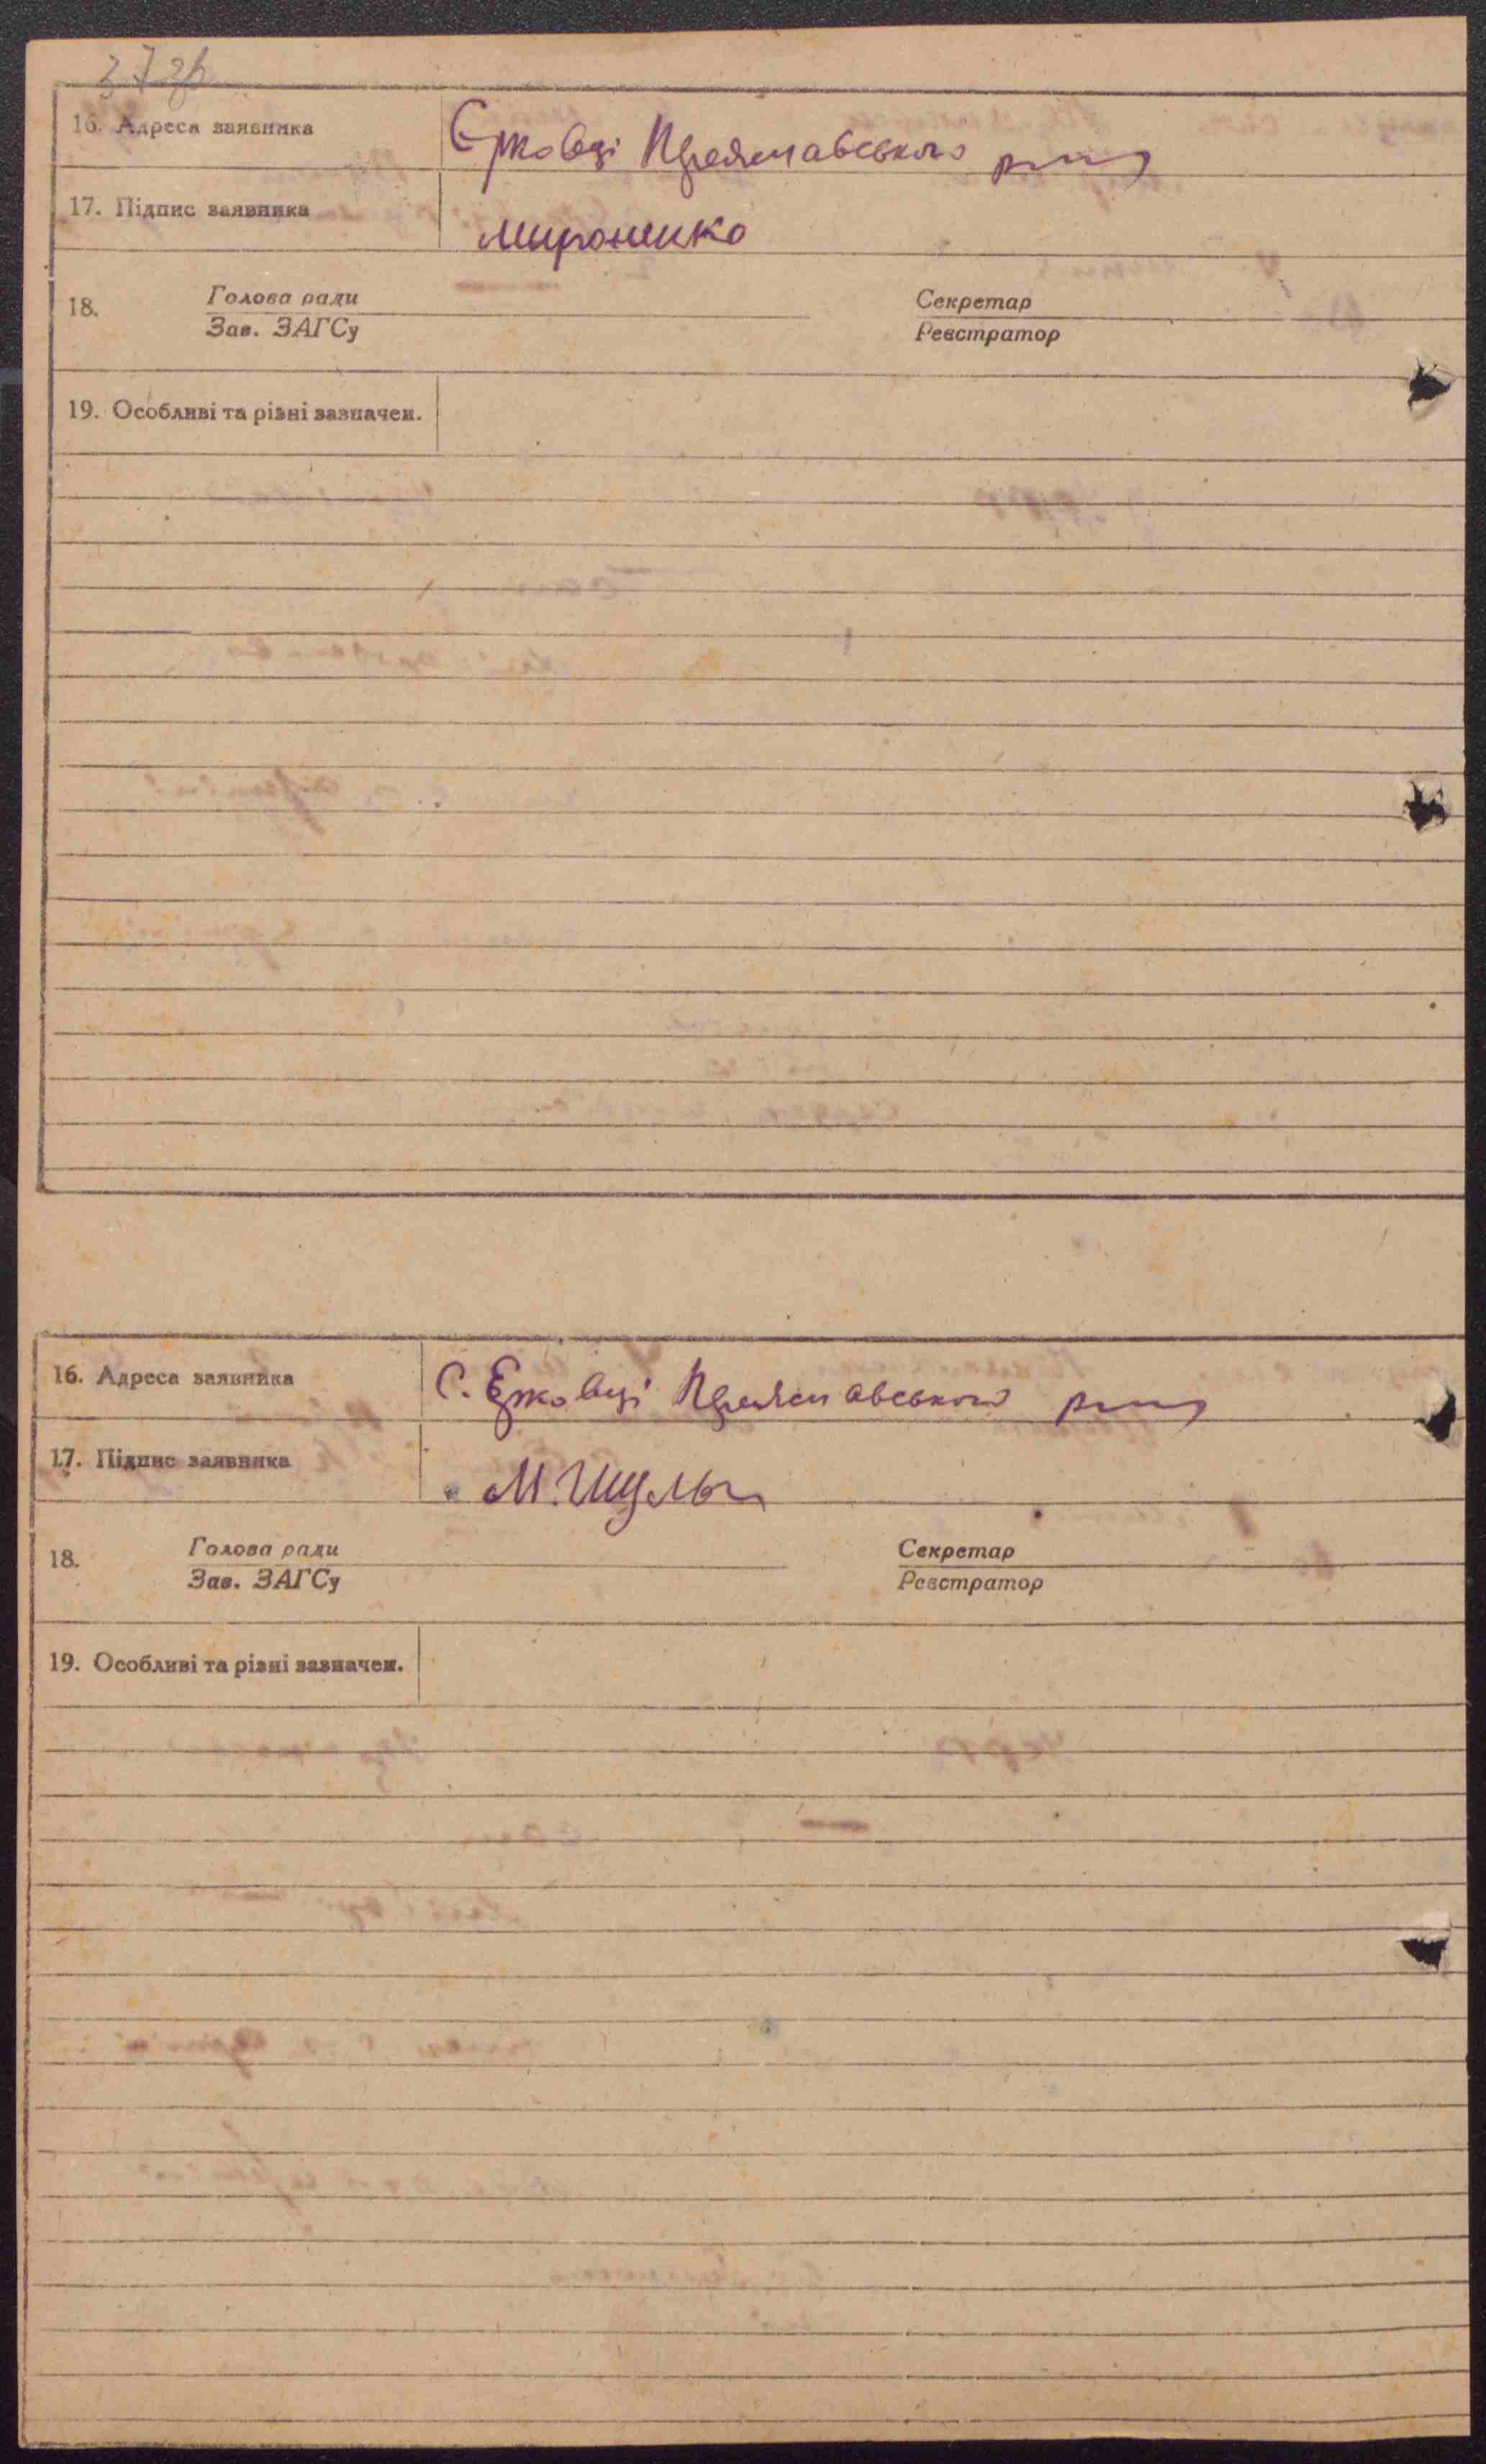 37зв
16. Адреса заявника Єрковці Переяславського р-ну
17. Підпис заявника Мироненко
18. Голова ради Секретар
Зав. ЗАГСу Реєстратор
19. Особливі та різні зазначен.
16. Адреса заявника С. Єрковці Переяславського р-ну
17. Підпис заявника М.
18. Голова ради Секретар
Зав. ЗАГСу Реєстратор
19. Особливі та різні зазначен.